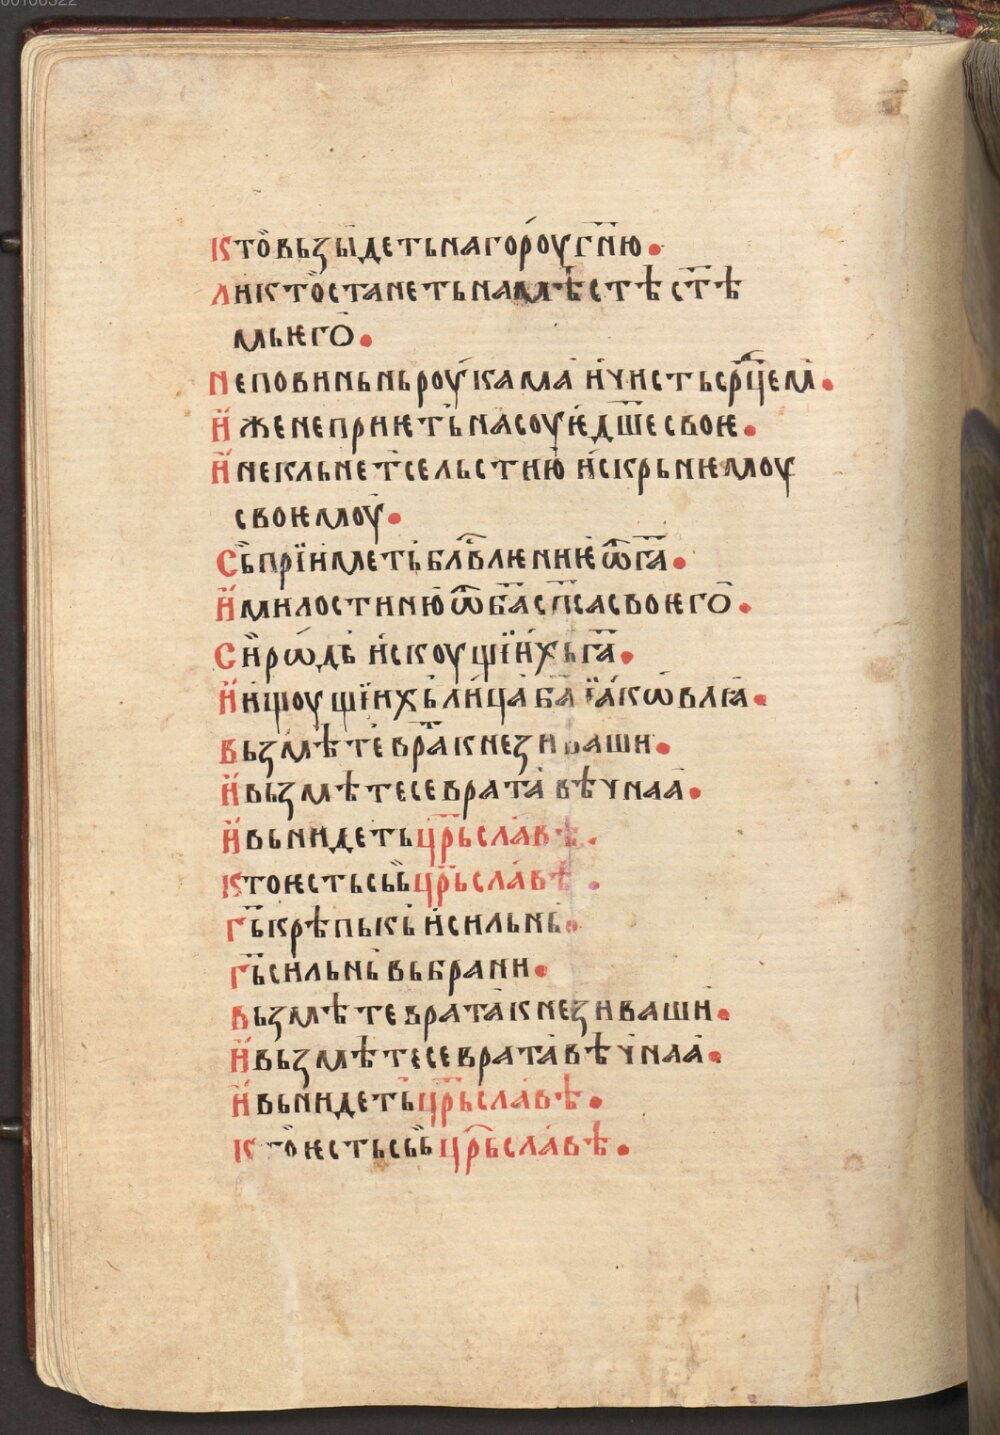 00106322
Кто̀ вьзы́деть на го́роу гн҃ю.
Ли кто̀ станеть на мѣ́стѣ ст҃ѣ
мь ѥго̀.
Неповиньнь роу́кама̀ и҆ чисть ср҃цемь.
И҆же неприѥть на соу́ѥ дш҃е своѥ.
И҆ не кльнет се льстию̀ и҆скрьнѥмоу
своѥмоу̀.
Сь прїиметь блⷭ҇влѥниѥ ѿ г҃а.
И҆ милостиню̀ ѿ б҃а сп҃са своѥго̀.
Си҆ рѡ́дь и҆скоущїи́хь г҃а.
И҆ и҆щоущїихь ли́ца̀ б҃а і҆а́кѡвлꙗ̀.
Вьзмѣте вра҃та кнези ваши.
И҆ вьзмѣте се врата̀ вѣчнаа̀.
И҆ вьнидеть цр҃ь сла́вѣ.
Кто ѥсть сьь цр҃ь сла́вѣ.
Г҃ь крѣпькь и҆ сильнь.
Г҃ь сильнь вь брани.
Вьзмѣте врата̀ кнези ваши̇.
И҆ вьзмѣте се врата̀ вѣчнаа̀.
И҆ вьнидеть цр҃ь сла́вѣ.
Кто̀ ѥсть сьь цр҃ь сла́вѣ.